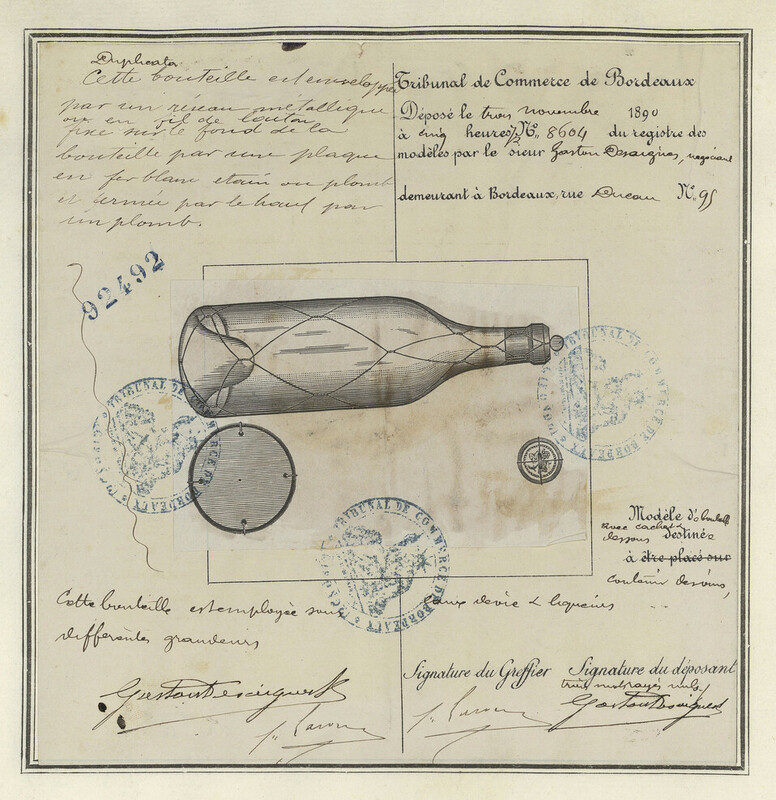 Duplicata
Cette bouteille est enveloppée
par un réseau métallique
ou en fil de laiton
fixé sur le fond de la
bouteille par une plaque
en fer blanc étain ou plomb
et fermée par le haut par
un plomb.
Tribunal de Commerce de Bordeaux
Déposé le trois novembre 1890
à cinq heures 1/2 N° 8604 du registre des
modèles par le sieur Gaston Descaignes, négociant
demeurant à Bordeaux, rue N° 95
92492
TRIBUNAL DE COMMERCE DE BORDEAUX
TRIBUNAL DE COMMERCE DE BORDEAUX
TRIBUNAL DE COMMERCE DE BORDEAUX
Modèle de bouteille
avec cachet
dessous destinée
à être placé sur
contenir des vins,
Cette bouteille est employée sous eaux de vie & liqueurs
différentes grandeurs
Signature du Greffier Signature du déposant
trois mots rayés nuls